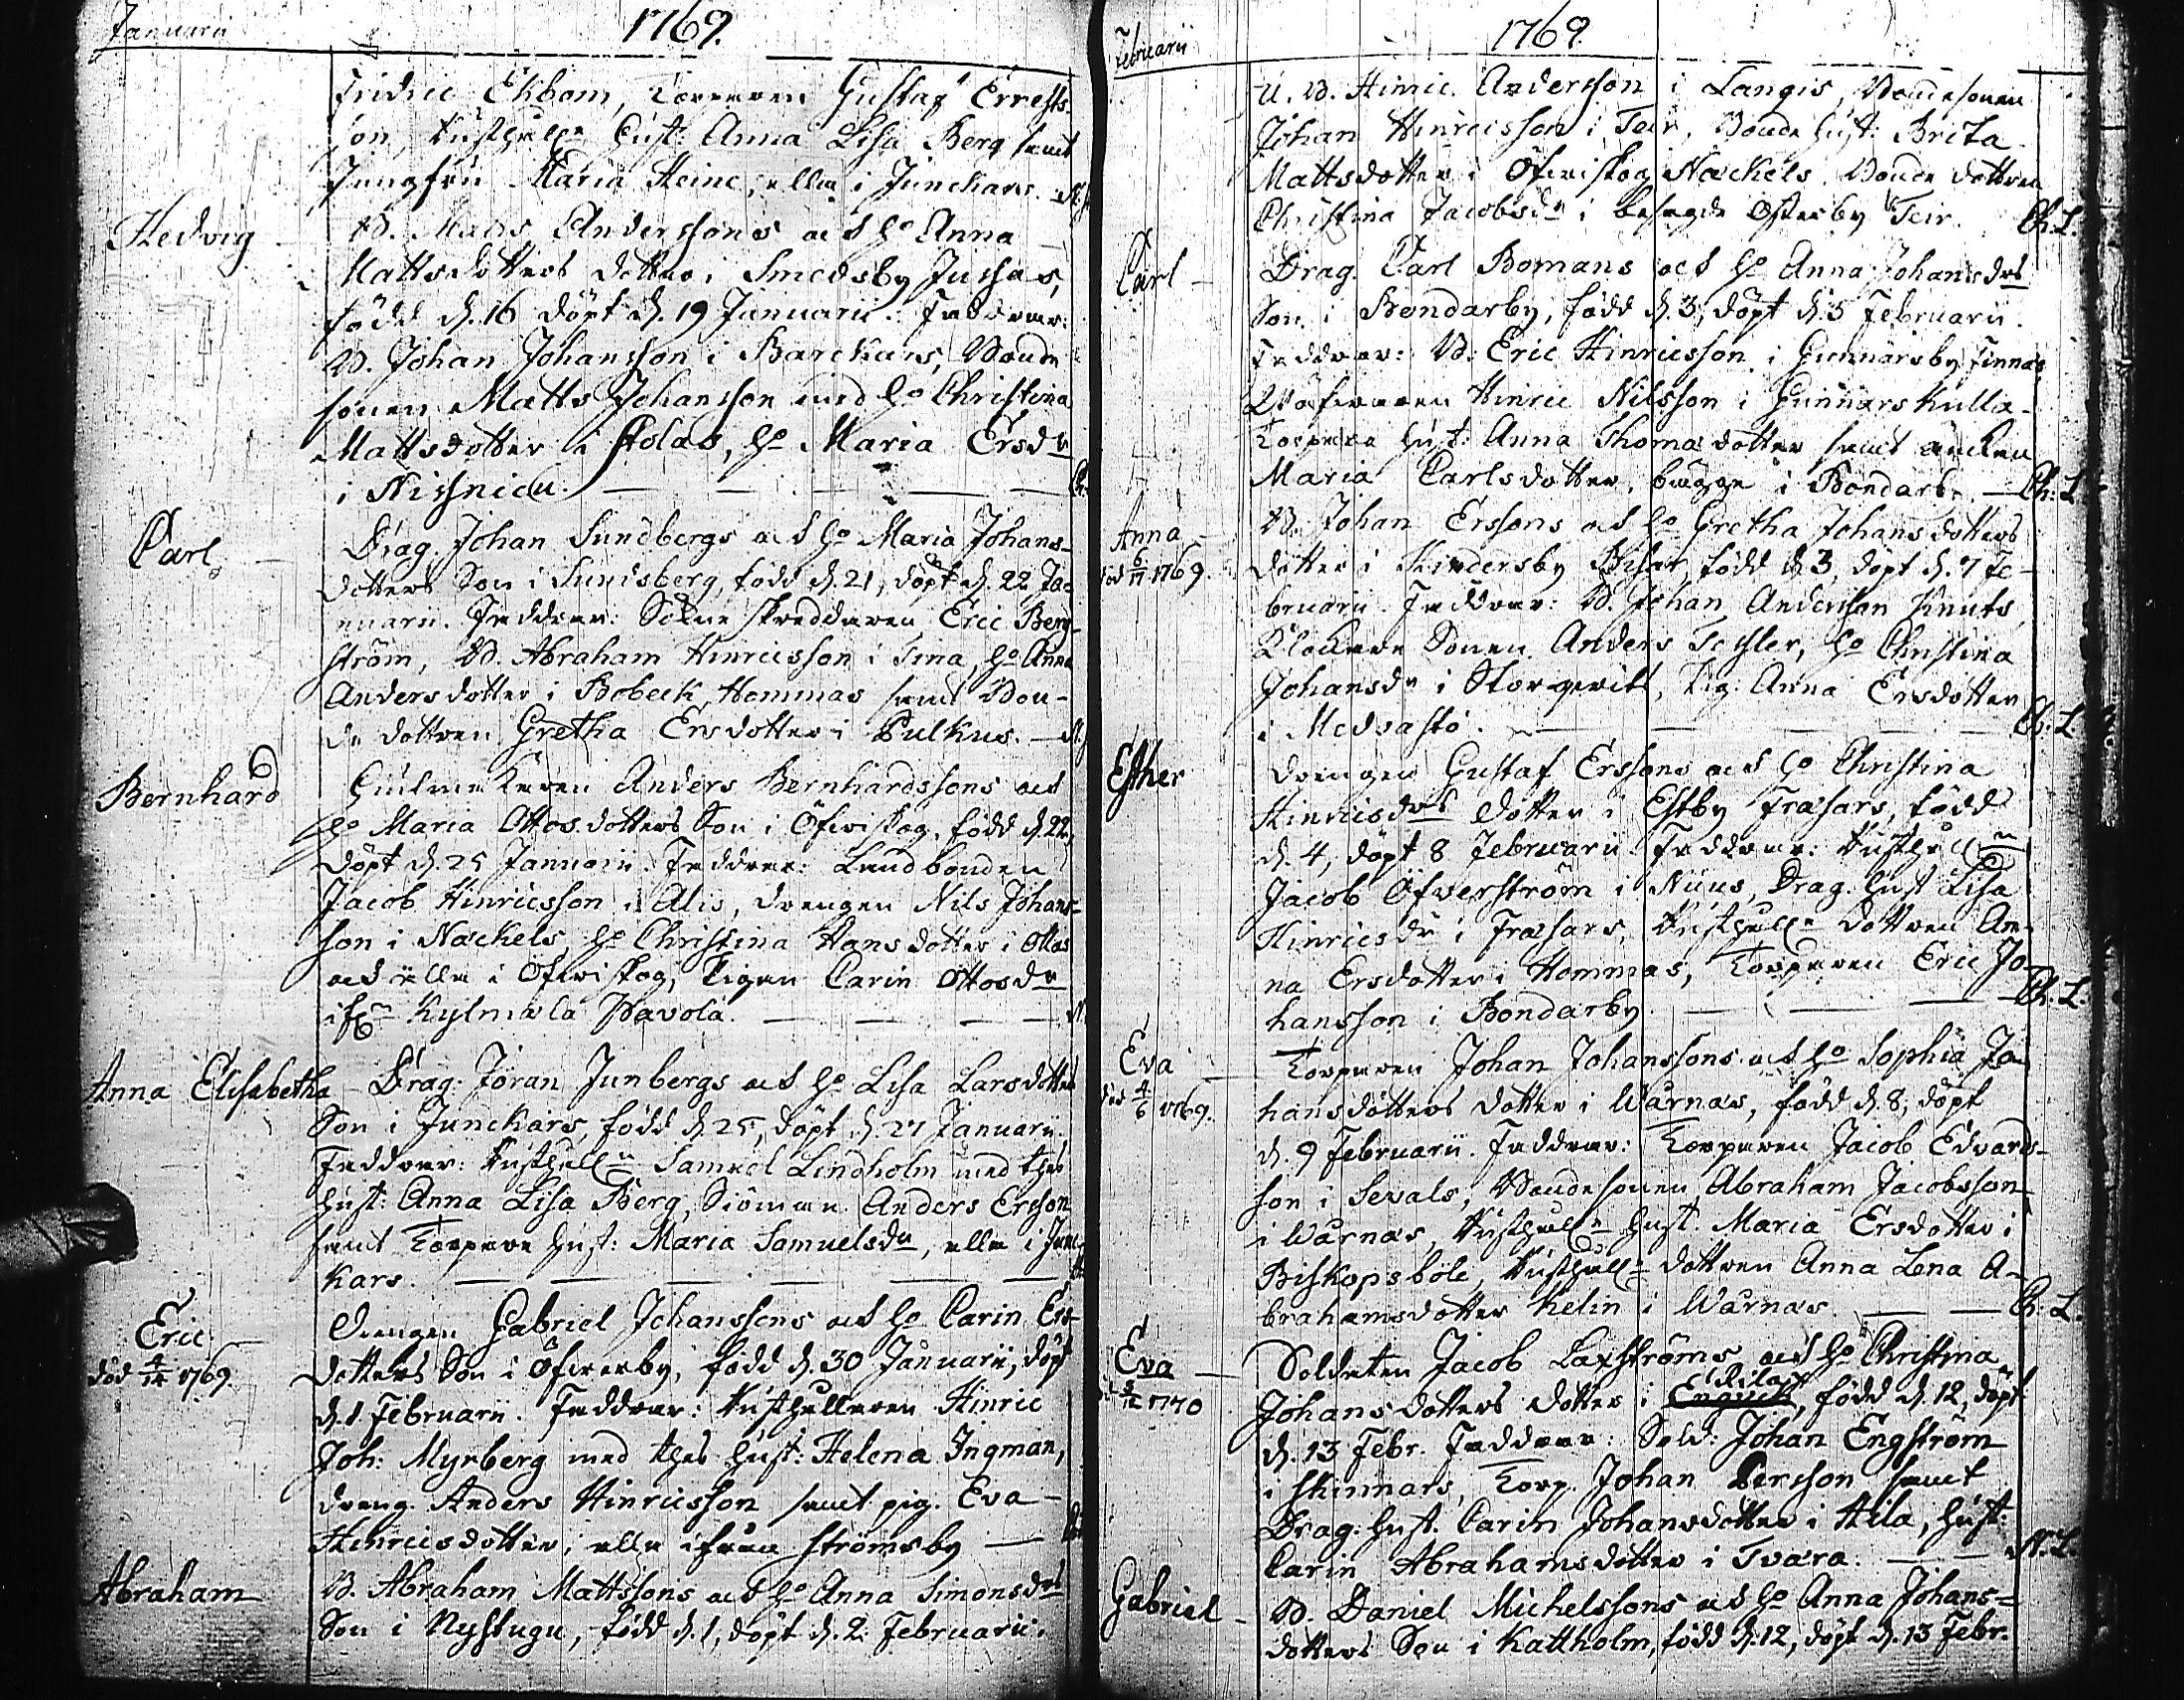 Januarii
1769.
Fridric Ekbom, Torparen Gustaf Errests-
son, Rusthåll:n hust: Anna Lisa Berg samt
Jungfru Maria Heine, alla i Junckars.
Hedvig
B. Matts Anderssons och h:o Anna
Mattsdotters dotter i Smedsby Jussas,
född d. 16 döpt d. 19 Januarii. Faddrar:
B. Johan Johansson i Barckars, Bonde
sonen Matts Johansson med h:o Christina
Mattsdotter i Stolas, h:o Maria Ersd:r
i Nissnicu.
Carl
Drag. Johan Sundbergs och h:o Maria Johans-
dotters Son i Sundsberg, född d. 21, döpt d. 22 Ja-
nuarii. Faddrar: Sockne skreddaren Eric Berg-
ström, B. Abraham Hinricsson i Tina, h:o Anna
Andersdotter i Bobeck Hommas samt Bon-
de dottren Gretha Ersdotter i Pulkus.
Bernhard
Anders Bernhardssons och
h:o Maria Ottosdotters Son i Öfwiskog, född d. 22,
döpt d. 25 Januarii. Faddrar: Landbonden
Jacob Hinricsson i Alis, drengen Nils Johans-
son i Nackels, h:o Christina Hansdotter i Ottas
och alla i Öfwiskog, Pigan Carin Ottosd:r
ifr:n Kylmala Pavola.
Anna Elisabetha
Drag: Jöran Junbergs och h:o Lisa Larsdotters
Son i Junckars, född d. 25, döpt d. 27 Januarii.
Faddrar: Rusthåll:n Samuel Lindholm med thes
hust: Anna Lisa Berg, Siöman Anders Ersson
samt Torpare hust: Maria Samuelsd:r, alla i Junc-
kars.
Eric
död 4/14 1769.
Drengen Gabriel Johanssons och h:o Carin Ers-
dotters Son i Öfwerby, född d. 30 Januarii, döpt
d. 1 Februarii. Faddrar: Rusthållaren Hinric
Joh: Myrberg med thes hust: Helena Ingman,
dreng. Anders Hinricsson samt pig. Eva
Hinricsdotter, alla ifrån Strömsby
Abraham
B. Abraham Mattssons och h:o Anna Simonsd:rs
Son i Nystugu, född d. 1, döpt d. 2 Februarii.
Februarii
1769.
U. B. Hinric Andersson i Langis, Bondesonen
Johan Hinricsson i Teir, Bonde hust: Brita
Mattsdotter i Öfwiskog Nackels. Bonde dottren
Christina Jacobsd:r i besagde Österby Teir. Ch. L.
Carl
Drag. Carl Bomans och h:o Anna Johansd:rs
Son i Bondarby, född d. 3, döpt d. 5 Februarii.
Faddrar: B: Eric Hinricsson i Gunnarsby Finnas,
Hinric Nilsson i Gunnarskulla
Torpare hust: Anna Thomasdotter samt änkan
Maria Carlsdotter, bägge i Bondarby. Ch: L
Anna
död 6/17 1769.
B: Johan Erssons och h:o Gretha Johansdotters
dotter i Kindersby Bisas, född d. 3, döpt d. 7 Fe-
bruarii. Faddrar: B. Johan Andersson Knuts,
Klockare Sonen Anders Tesler, h:o Christina
Johansd:r i Storqwist, Pig: Anna Ersdotter
i Medvastö. Ch. L.
Esther
Drengen Gustaf Erssons och h:o Christina
Hinricsd:rs dotter i Estby Fräsars, född
d. 4, döpt 8 Februarii. Faddrar: Rusthåll:n
Jacob Öfverström i Nuus, Drag. hust Lisa
Hinricsd:r i Fräsars, Rusthåll:n dottren An-
na Ersdotter i Hommas, Torparen Eric Jo-
hansson i Bondarby Ch. L.
Eva
död 4/6 1769.
Torparen Johan Johanssons och h:o Sophia Jo-
hansdotters dotter i Wårnäs, född d. 8, döpt
d. 9 Februarii. Faddrar: Torparen Jacob Edvards-
son i Sevals, Bondesonen Abraham Jacobsson
i Wårnäs, Rusthåll:n hust. Maria Ersdotter i
Biskopsböle, Rusthåll:n dottren Anna Lena A-
brahamsdotter Kelin i Wårnäs. Ch. L.
Eva
3/12 1770
Soldaten Jacob Laxströms och h:o Christina
Johansdotters dotter i Engvick, född d. 12, döpt
d. 13 Febr. Faddrar: Sold: Johan Engström
i Skinnars, Torp. Johan Persson samt
Drag: hust. Carin Johansdotter i Hila, hust:
Carin Abrahamsdotter i Tvära. N. L.
Gabriel
B. Daniel Michelssons och h:o Anna Johans-
dotters Son i Kattholm, född d. 12, döpt d. 13 Febr.